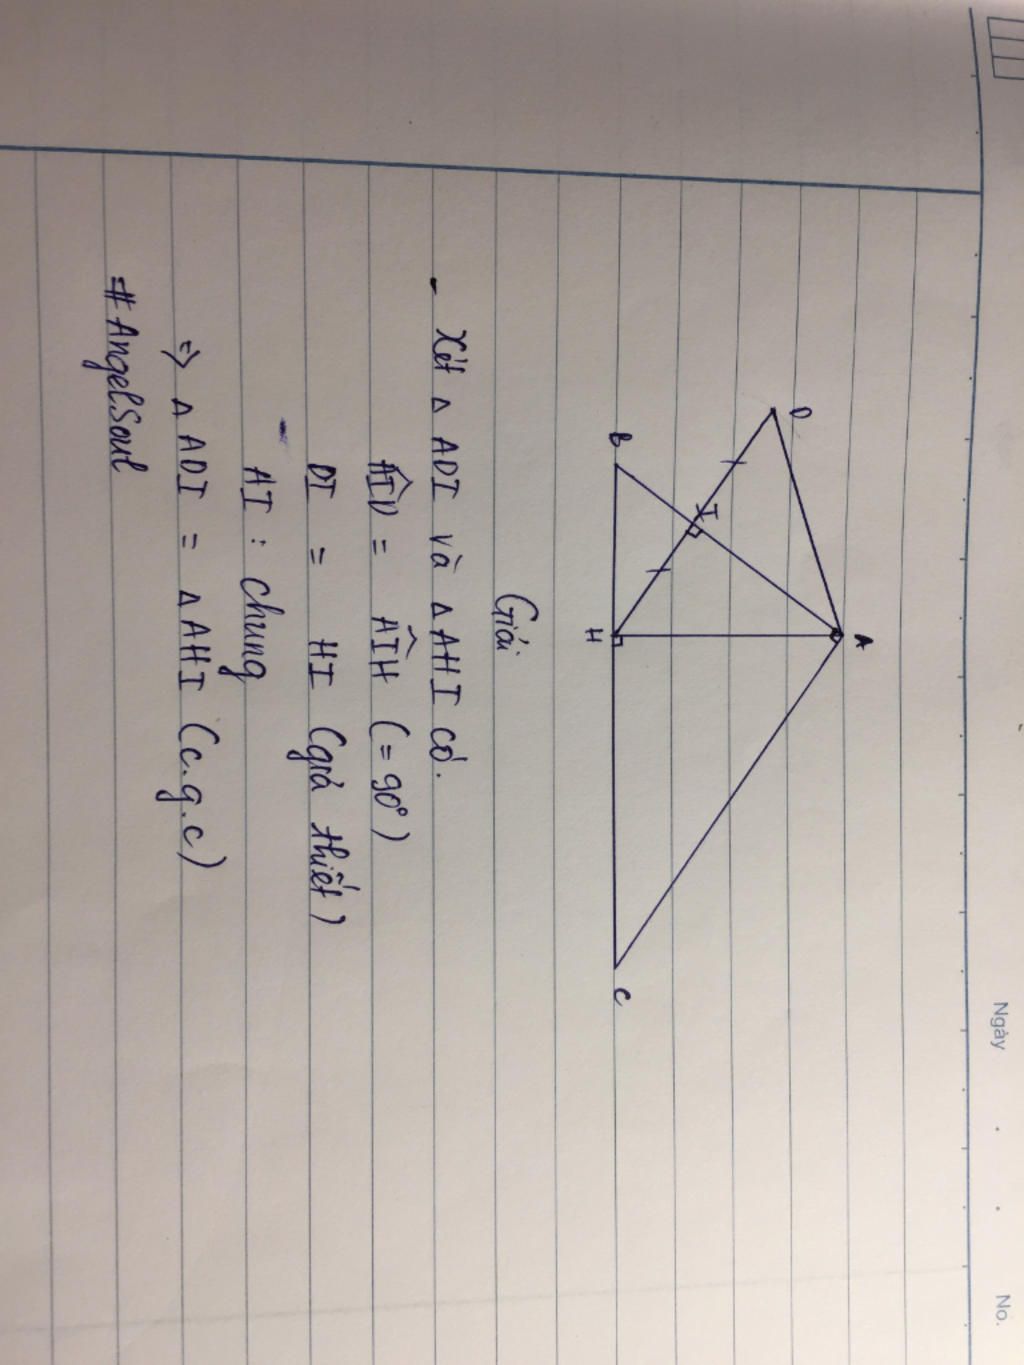 Ngày . . No.
A
D
I
B
H
C
Giải
- Xét Δ ADI và Δ AHI có.
AÎD = AÎH (= 90°)
DI = HI (giả thiết)
AI : chung
=> Δ ADI = Δ AHI (c.g.c)
#AngelSoul